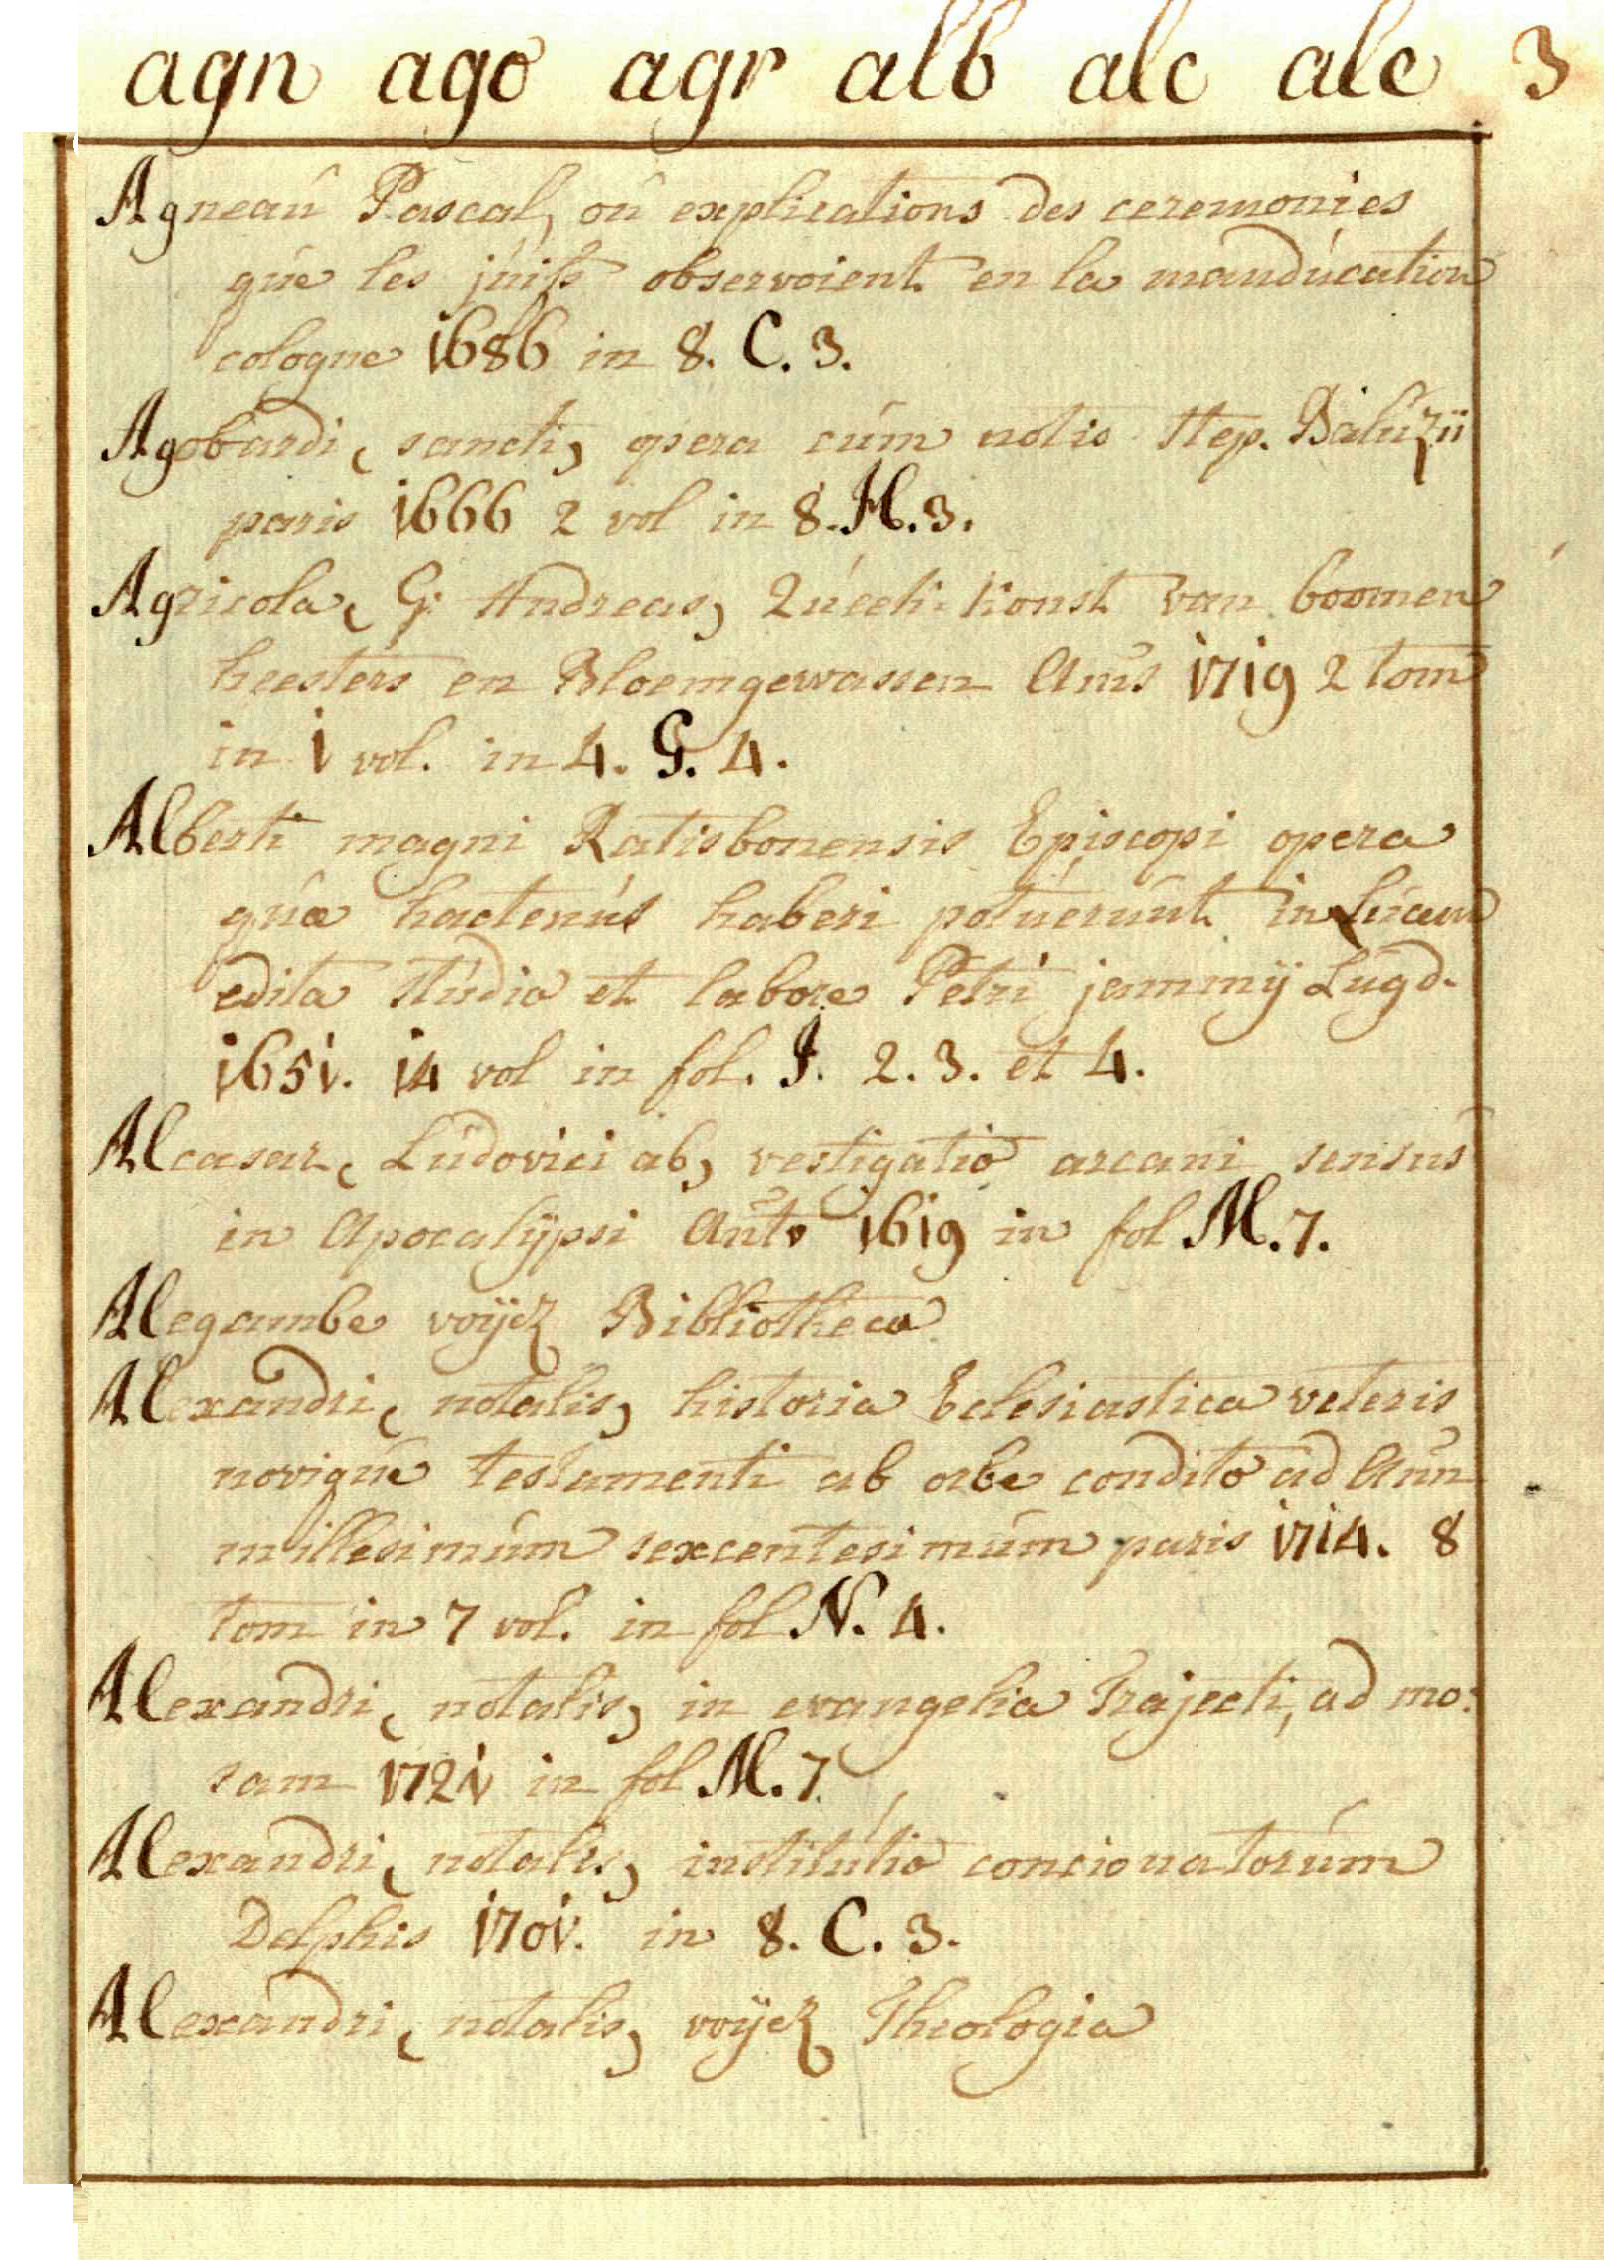 agn ago agr alb alc ale 3
Agneaú Pascal, oú explications des ceremonies
qúe les júifs observoient en la mandúcation
cologne 1686 in 8. C. 3.
Agobardi, sancti, opera cúm notis Step. Balúzii
paris 1666 2 vol in 8. H. 3.
Agricola, G: Andreas, Qúeek-konst van boomen
heesters en Bloemgewassen Ams 1719 2 tom
in 1 vol. in 4. G. 4.
Alberti magni Ratisbonensis Episcopi opera
qúæ hactenús haberi potúerúnt in lúcem
edita stúdio et labore Petri jammÿ Lúgd.
1651. 14 vol in fol. J. 2. 3. et 4.
Alcasar, Lúdovici ab, vestigatio arcani sensús
in Apocalÿpsi Ants 1619 in fol M. 7.
Alegambe voÿez Bibliotheca
Alexandri, natalis, historia Eclesiastica veteris
noviqúe testamenti ab orbe condito ad Ann
millesimúm sexcentesimúm paris 1714. 8
tom in 7 vol. in fol N. 4.
Alexandri, natalis, in evangelia Trajecti, ad mo:
sam 1721 in fol M. 7.
Alexandri, natalis, institútio concionatorúm
Delphis 1701. in 8. C. 3.
Alexandri, natalis, voÿez Theologia